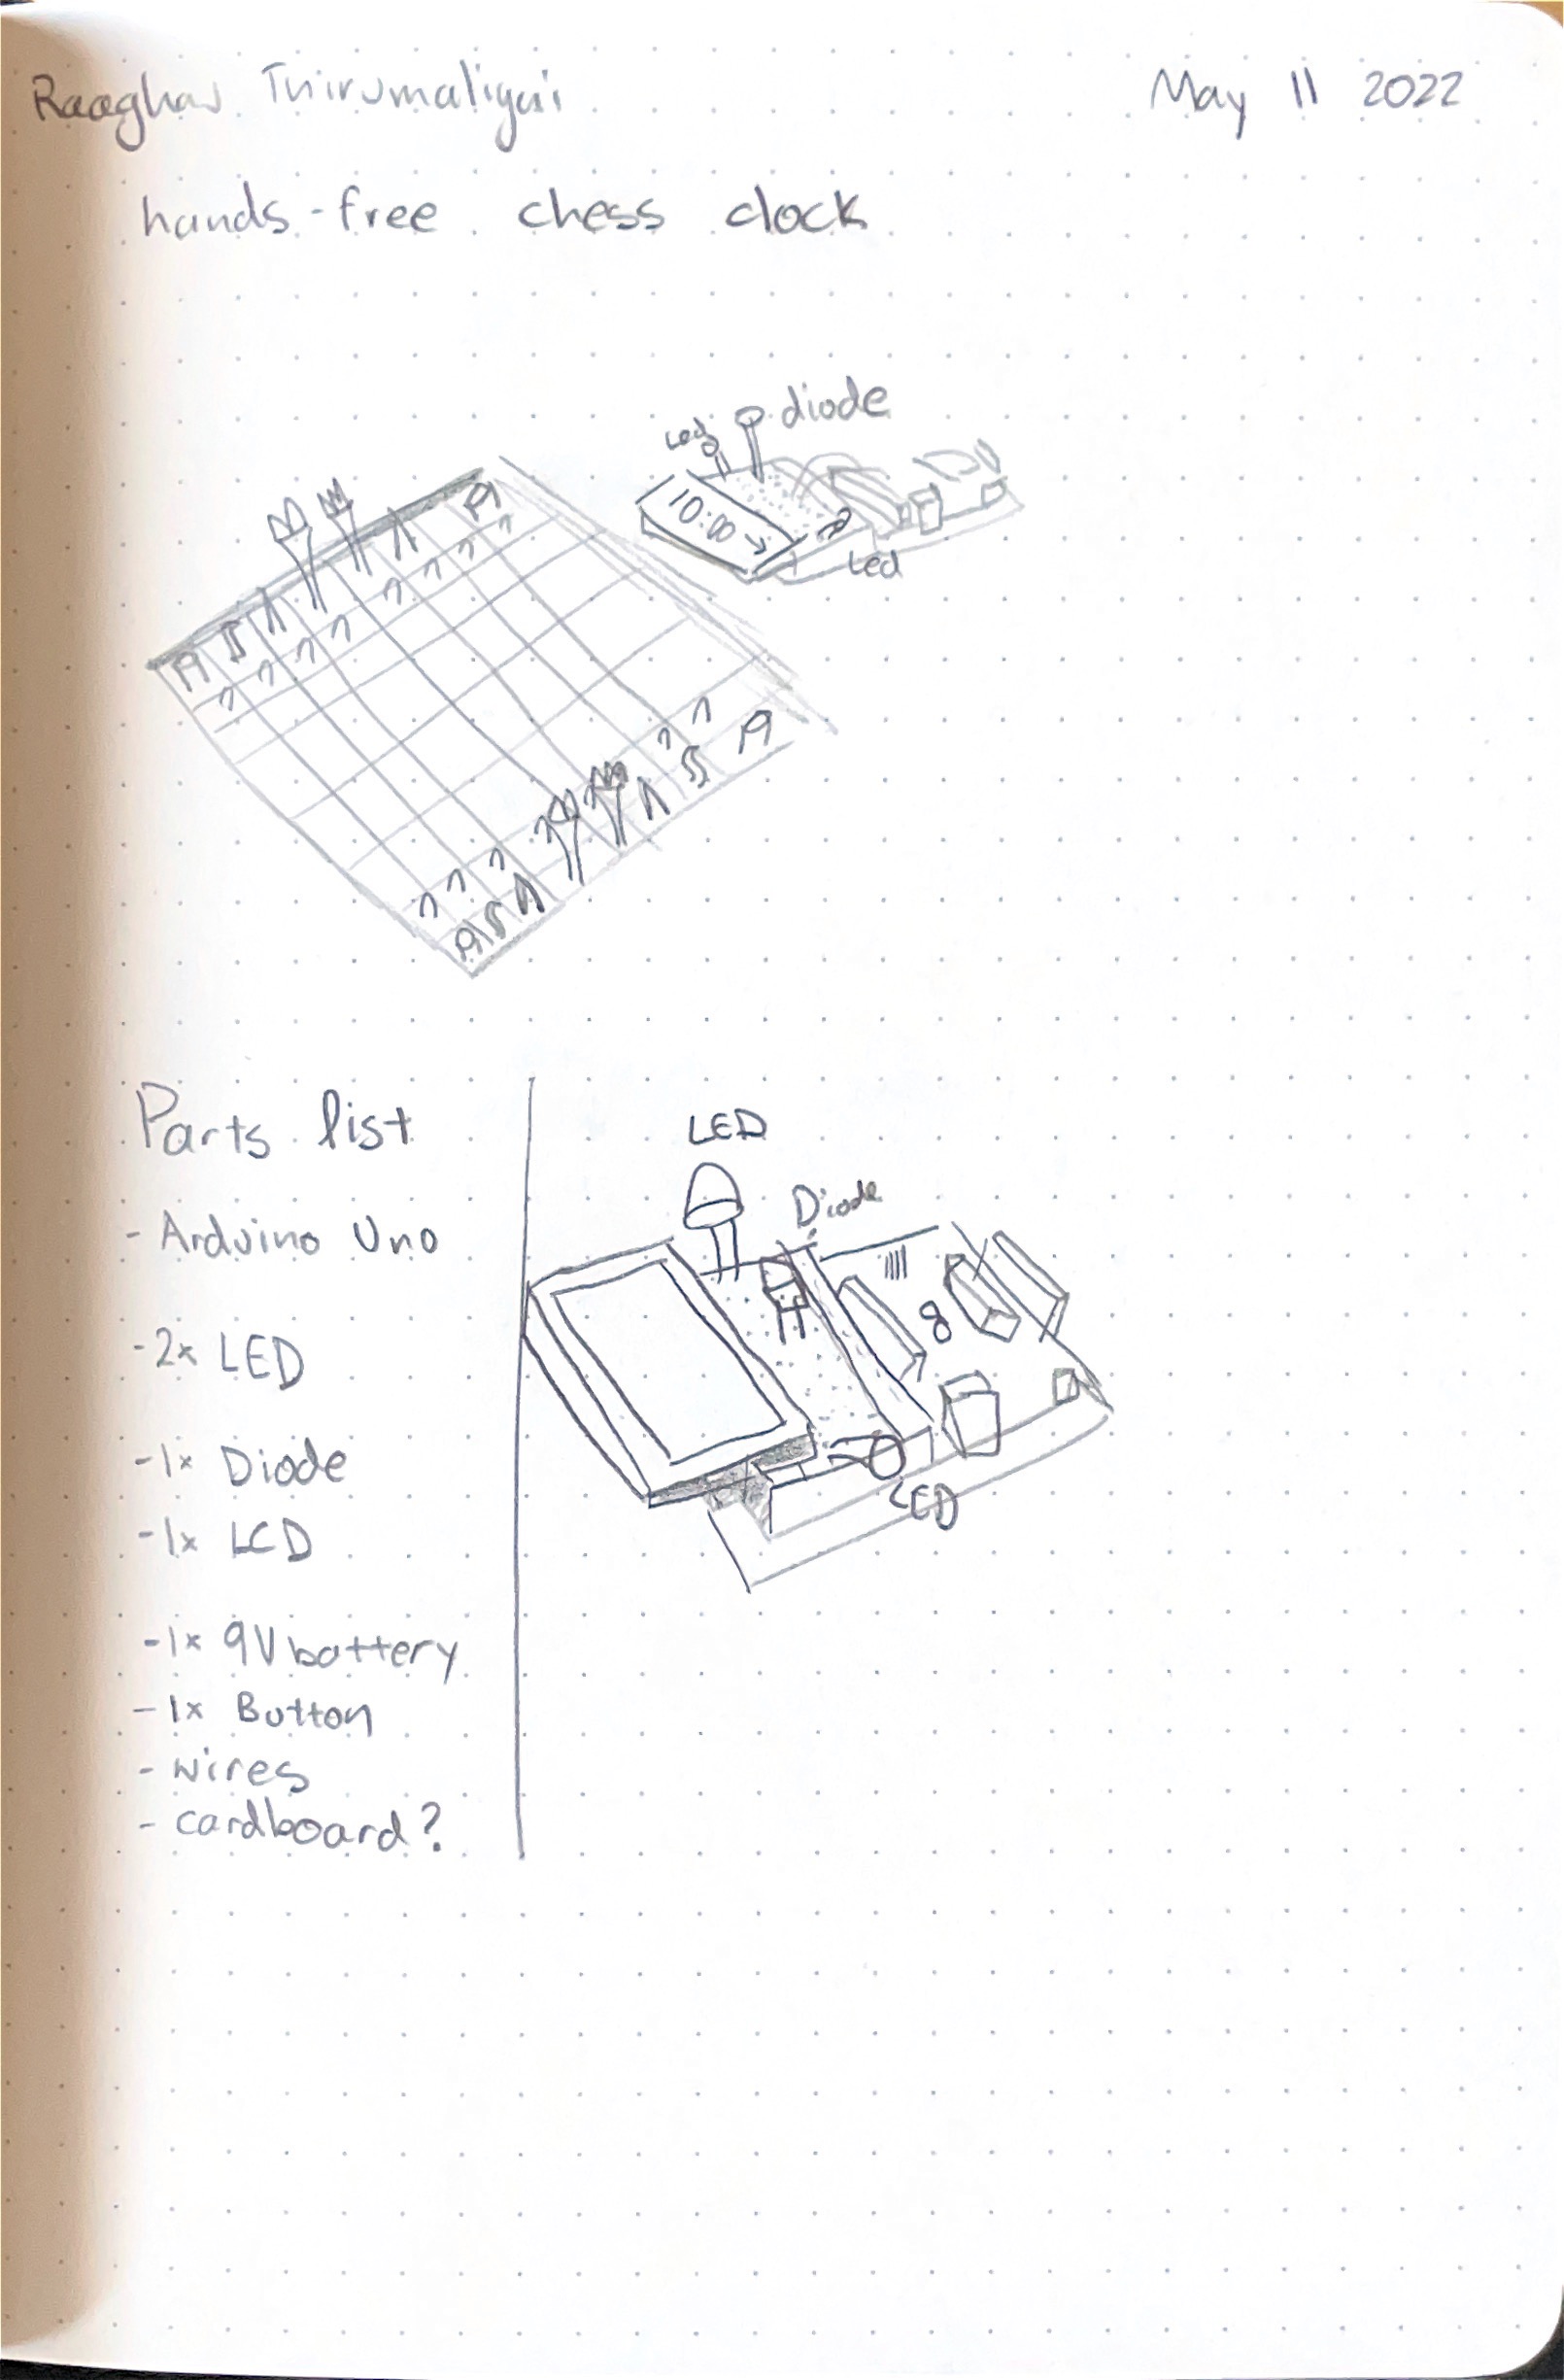 Raaghav Thirumaligai
May 11 2022
hands-free chess clock
Led
diode
10:00 →
Led
Parts list
- Arduino Uno
- 2x LED
- 1x Diode
- 1x LCD
- 1x 9V battery
- 1x Button
- wires
- cardboard?
LED
Diode
8
LED